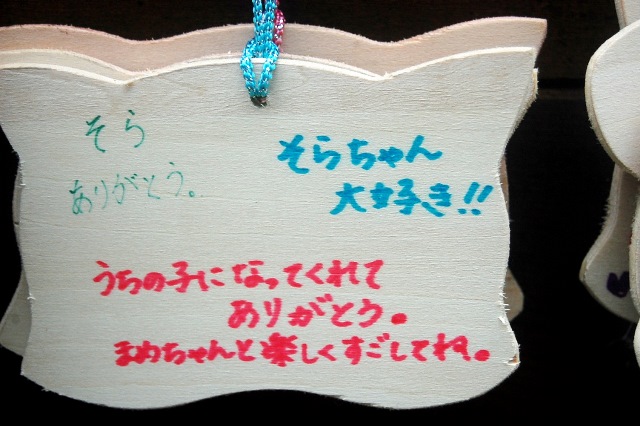 そら
ありがとう。
そらちゃん
大好き!!
うちの子になってくれて
ありがとう。
まめちゃんと楽しくすごしてね。